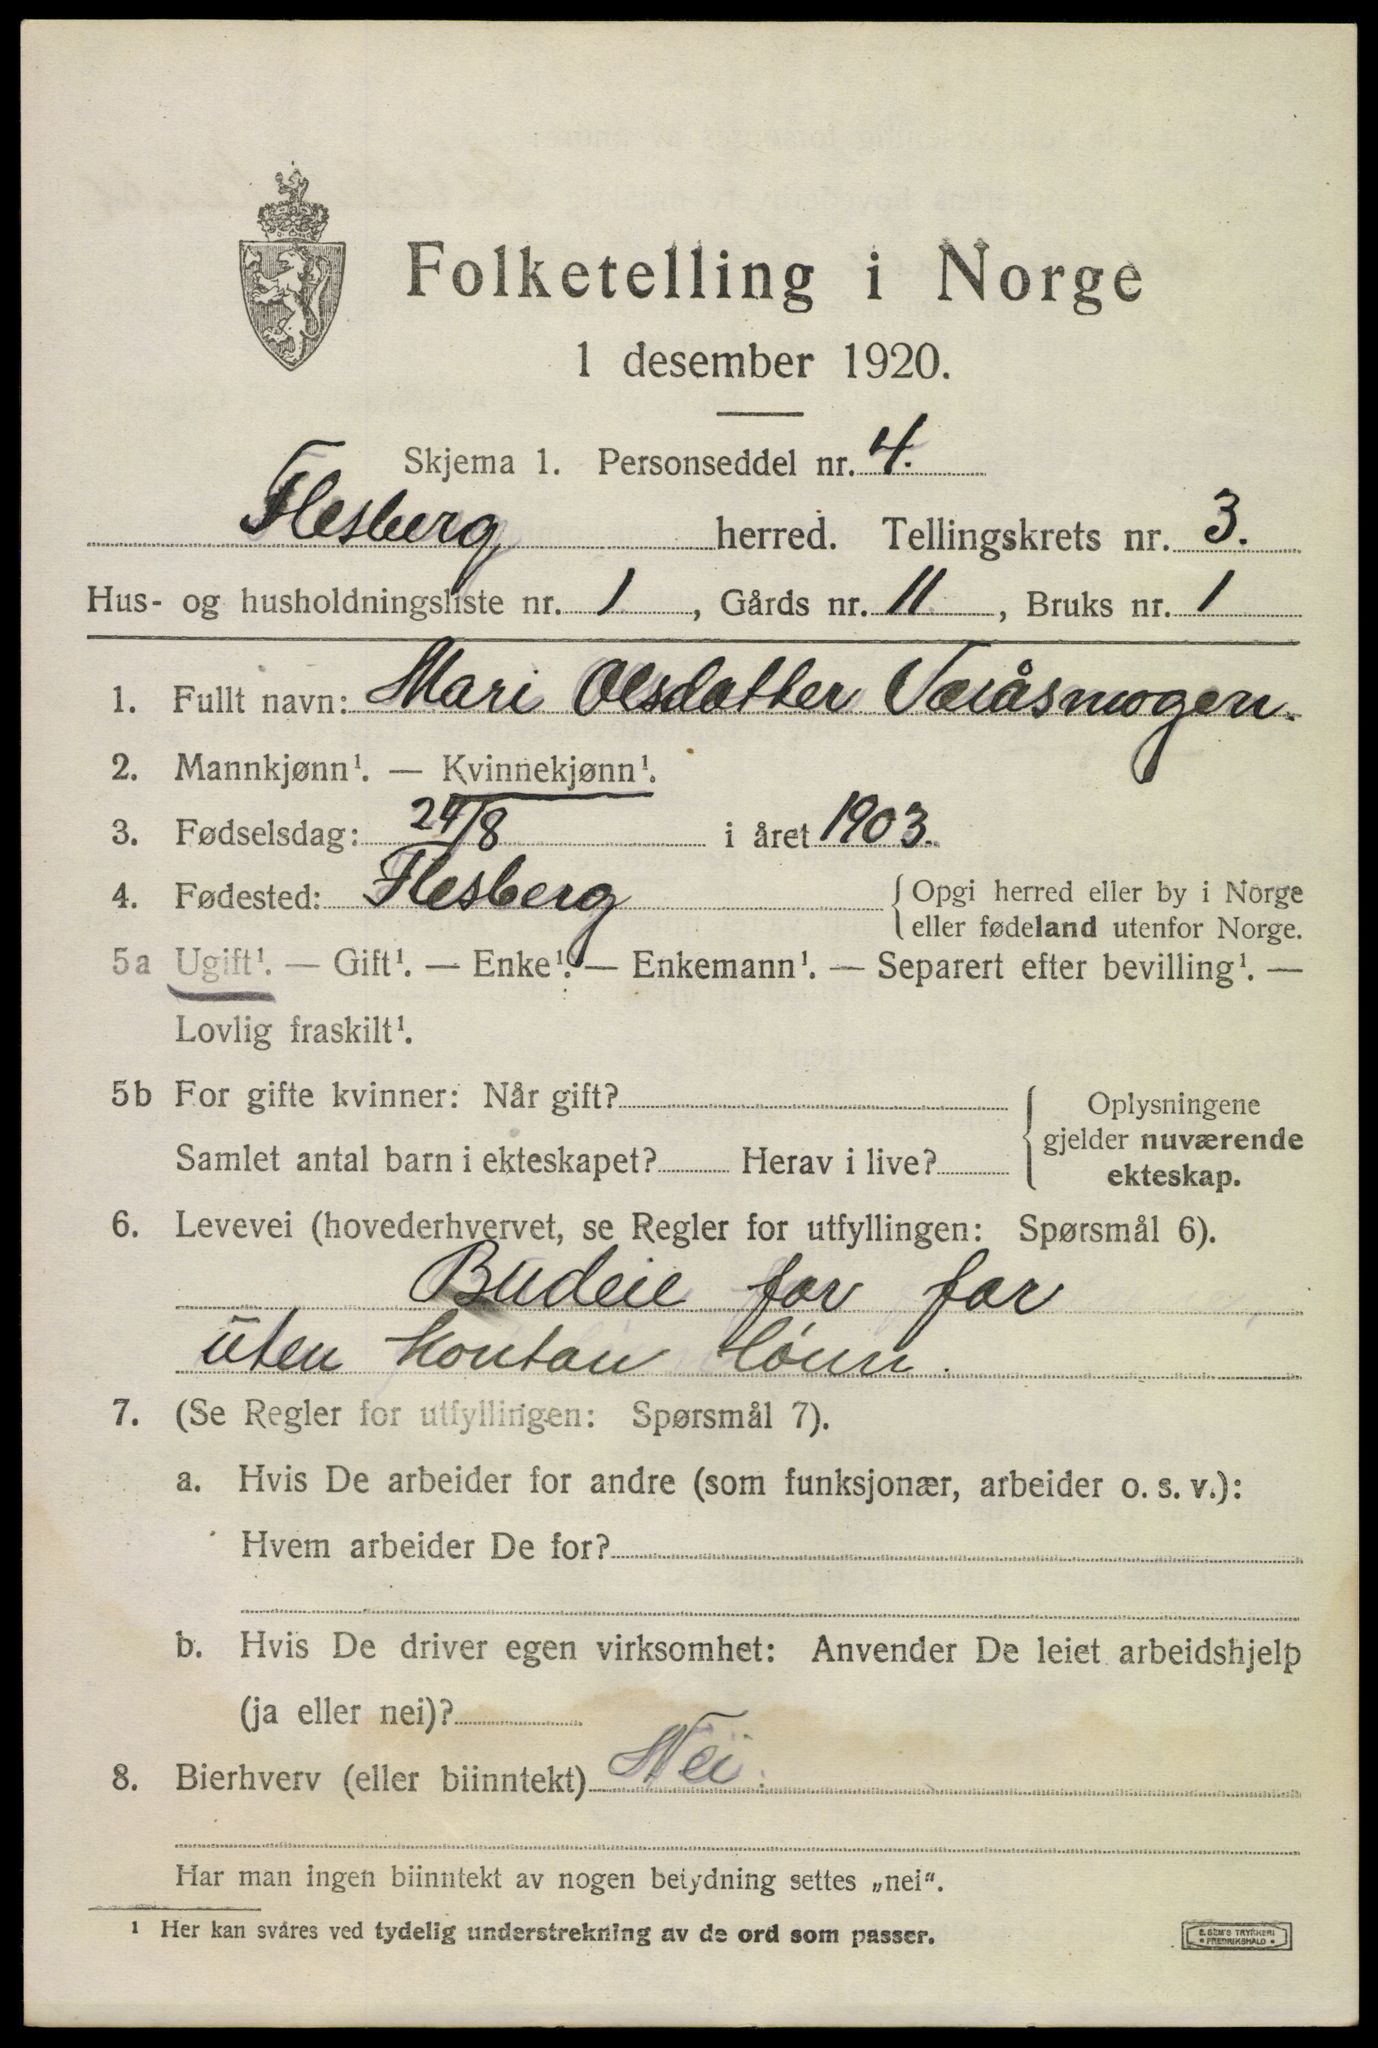 Folketelling i Norge
1 desember 1920.
Skjema 1. Personseddel nr. 4.
Flesberg herred. Tellingskrets nr. 3.
Hus- og husholdningsliste nr. 1, Gårds nr. 11, Bruks nr. 1
1. Fullt navn: Mari Olsdatter
2. Mannkjønn¹. — Kvinnekjønn¹.
3. Fødselsdag: 24/8 i året 1903.
4. Fødested: Flesberg { Opgi herred eller by i Norge
eller fødeland utenfor Norge.
5a Ugift¹. — Gift¹. — Enke¹. — Enkemann¹. — Separert efter bevilling¹. —
Lovlig fraskilt¹.
5b For gifte kvinner: Når gift? { Oplysningene
gjelder nuværende
ekteskap.
Samlet antal barn i ekteskapet? Herav i live?
6. Levevei (hovederhvervet, se Regler for utfyllingen: Spørsmål 6).
Budeie for far
uten kontan lønn.
7. (Se Regler for utfyllingen: Spørsmål 7).
a. Hvis De arbeider for andre (som funksjonær, arbeider o. s. v.):
Hvem arbeider De for?
b. Hvis De driver egen virksomhet: Anvender De leiet arbeidshjelp
(ja eller nei)?
8. Bierhverv (eller biinntekt) Nei.
Har man ingen biinntekt av nogen betydning settes „nei“.
¹ Her kan svåres ved tydelig understrekning av de ord som passer.
E. SEM'S TRYKKERI
• FREDRIKSHALD •